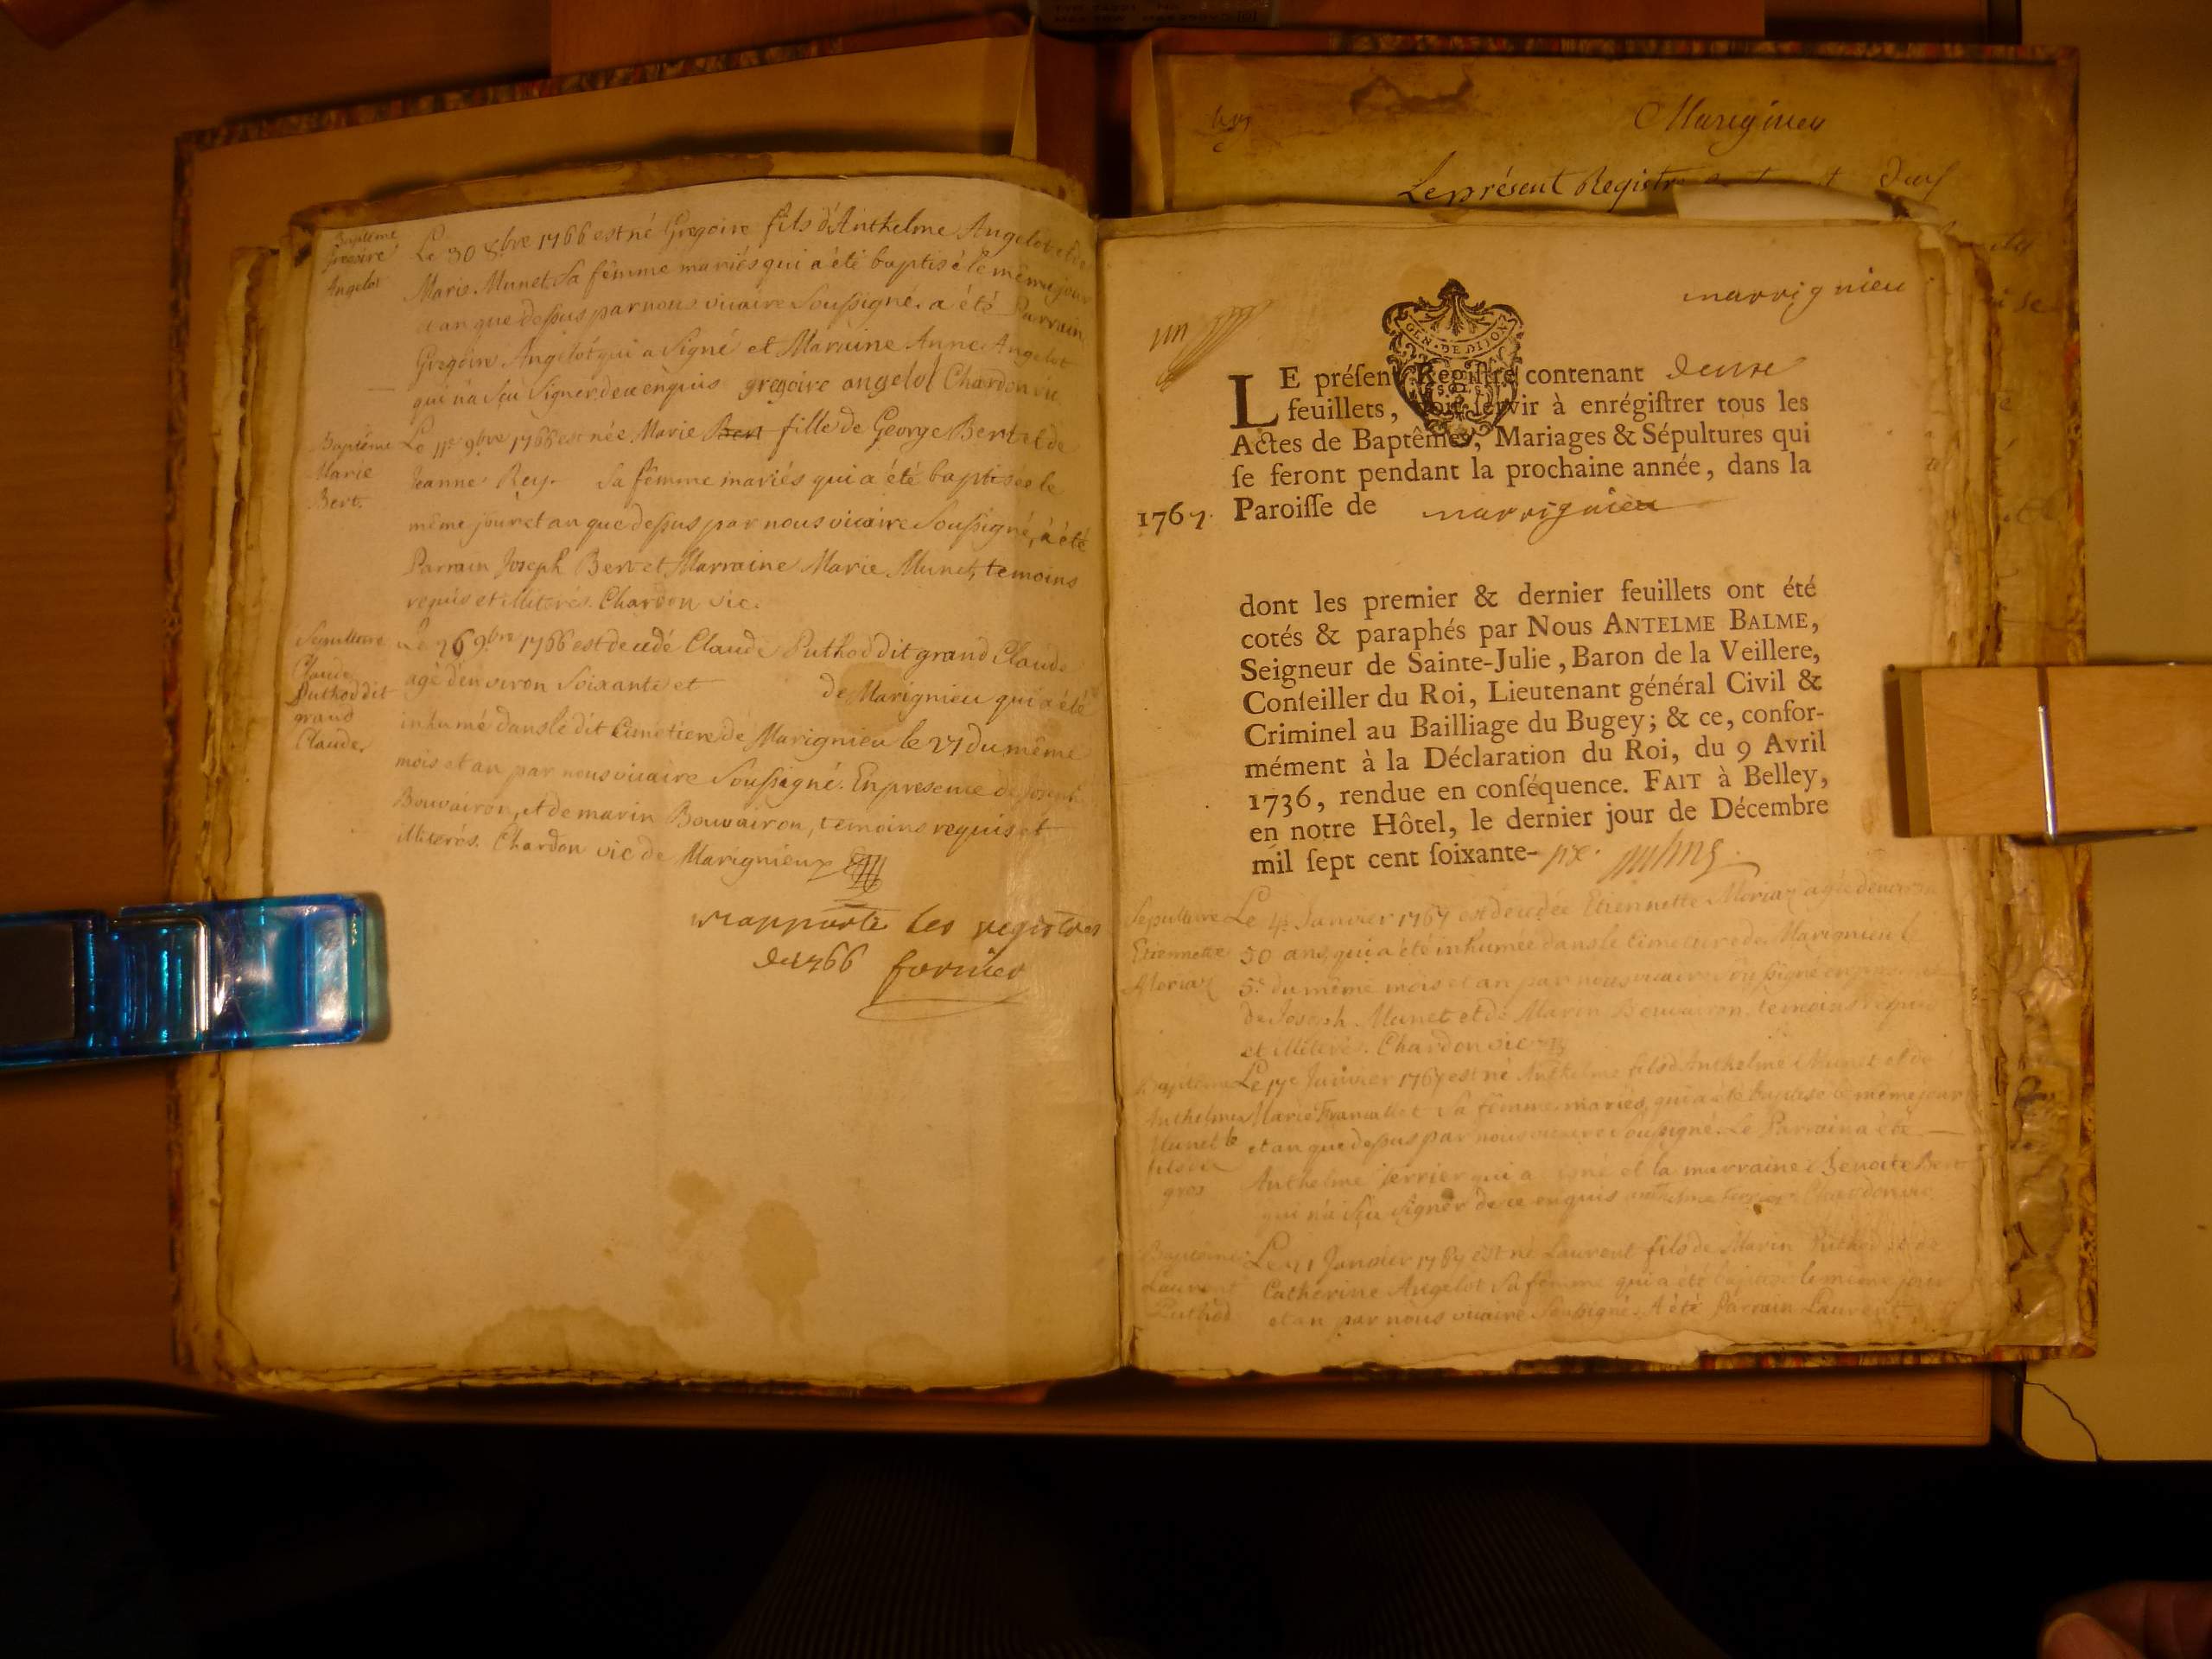 Baptême
Gregoire
Angelot
Le 30 8bre 1766 est né Gregoire fils d'Anthelme Angelot et de
Marie Munet sa fémme mariés qui a été baptisé le même jour
et an que dessus par nous vicaire Soussigné. a été Parrain
Gregoire Angelot qui a Signé et Maraine Anne Angelot
qui n'a Sçu Signer de ce enquis gregoire angelot Chardon vic
Baptême
Marie
Bert.
Le 11e 9bre 1766 est née Marie Bert fille de George Bert et de
Jeanne Rey. Sa fémme mariés qui a été baptisée le
même jour et an que dessus par nous vicaire Soussigné, a été
Parrain Joseph Bert et Marraine Marie Munet, temoins
requis et illiterés. Chardon vic.
Sepulture
Claude
Puthod dit
grand
Claude.
Le 26 9bre 1766 est decedé Claude Puthod dit grand Claude
agé d'environ Soixante et de Marignieu qui a été
inhumé dans le dit Cimetiere de Marignieu le 27 du même
mois et an par nous vicaire Soussigné. En presence de Joseph
Bouvairon, et de marin Bouvairon, temoins requis et
illiterés. Chardon vic de Marignieux
rapporté les registres
de 1766 fornier
Marignieu
Le présent Registre
marrignieu
GEN. DE DIJON
LE préſent Regiſtre contenant deuxe
feuillets, doit ſervir à enrégiſtrer tous les
Actes de Baptêmes, Mariages & Sépultures qui
ſe feront pendant la prochaine année, dans la
1767. Paroiſſe de marrignieu
dont les premier & dernier feuillets ont été
cotés & paraphés par Nous ANTELME BALME,
Seigneur de Sainte-Julie, Baron de la Veillere,
Conſeiller du Roi, Lieutenant général Civil &
Criminel au Bailliage du Bugey; & ce, confor-
mément à la Déclaration du Roi, du 9 Avril
1736, rendue en conſéquence. FAIT à Belley,
en notre Hôtel, le dernier jour de Décembre
mil ſept cent ſoixante-six.
Sepulture
Etiennette
Moriaz
Le 4e Janvier 1767 est decedée Etiennette Moriaz agée d'environ
50 ans, qui a été inhumée dans le Cimetiere de Marignieu le
5e du même mois et an par nous vicaire Soussigné en presence
de Joseph Munet et de Marin Bouvairon, temoins requis
et illiterés. Chardon vic
Baptême
Anthelme
Munet le
fils du
gros
Le 17e Janvier 1767 est né Anthelme fils d'Anthelme Munet et de
Marie Sa fémme mariés, qui a été baptisé le même jour
et an que dessus par nous vicaire Soussigné. Le Parrain a été
Anthelme Perrier qui a signé et la marraine Benoite Bert
qui n'a Sçu Signer de ce enquis Chardon vic
Baptême
Laurent
Puthod
Le 21 Janvier 1767 est né Laurent fils de Marin Puthod et de
Catherine Angelot Sa fémme qui a été baptisé le même jour
et an par nous vicaire Soussigné. A été Parrain Laurent